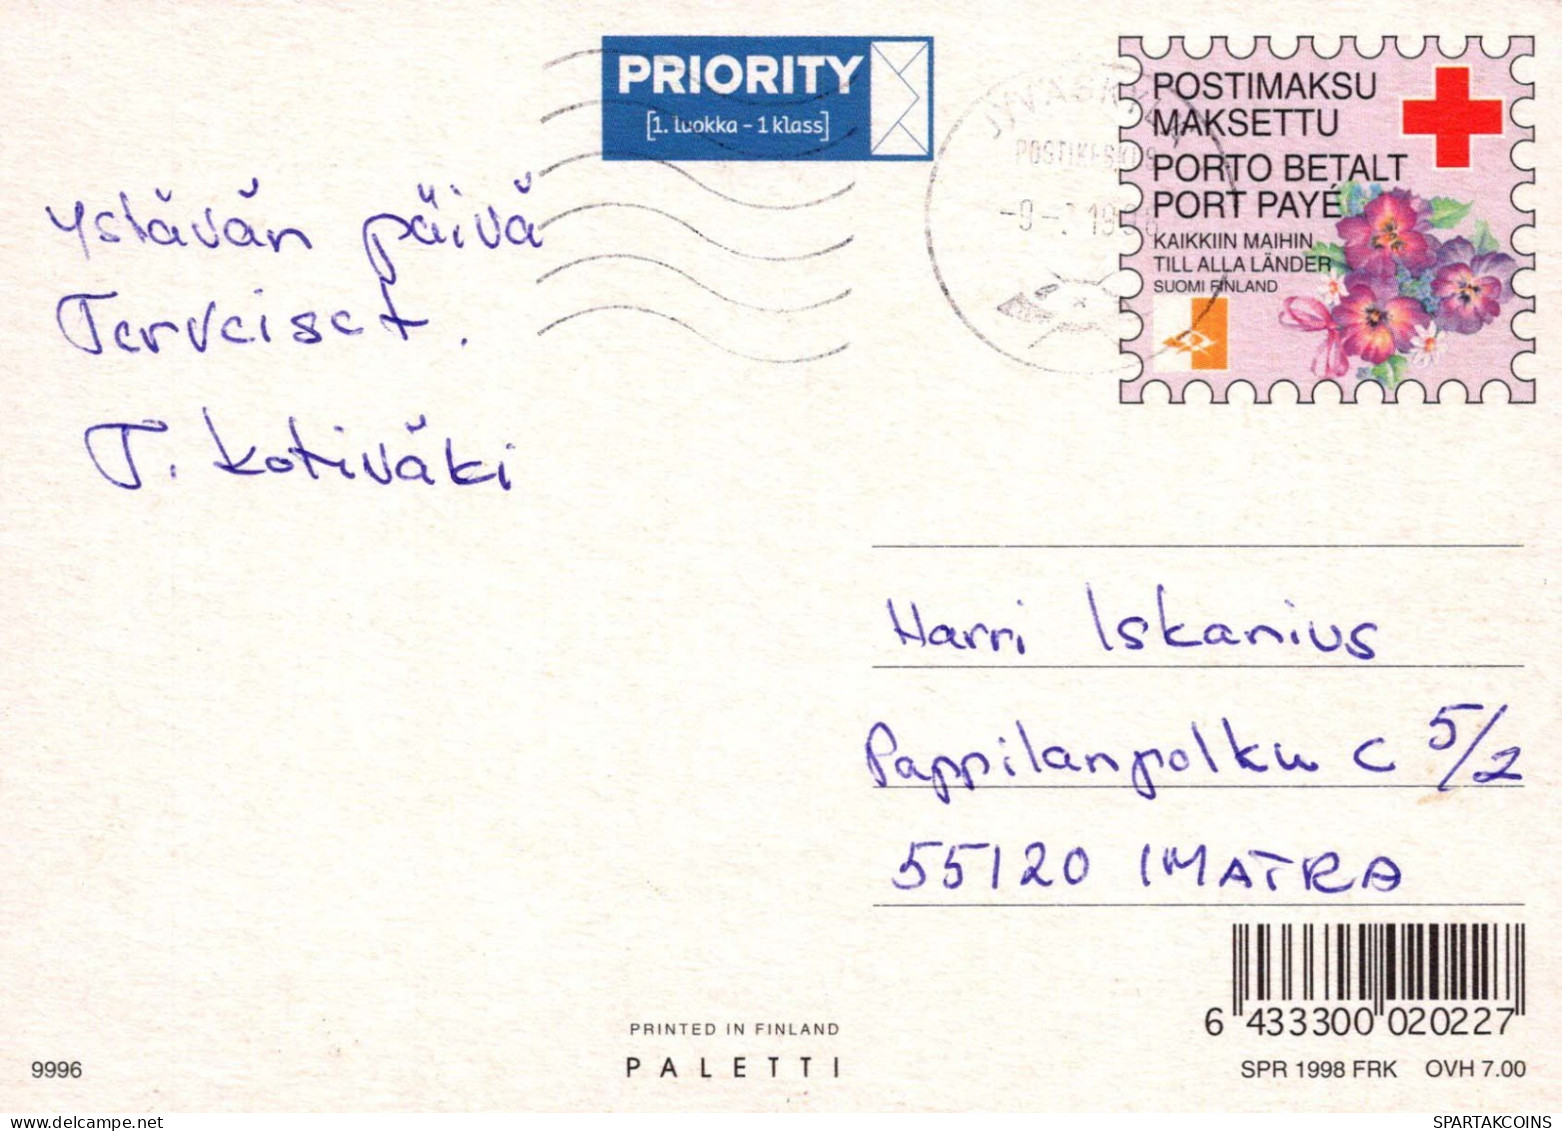 PRIORITY
[1. luokka - 1 klass]
JYVÄSKYLÄ
POSTIKESKUS
POSTIMAKSU
MAKSETTU
PORTO BETALT
PORT PAYÉ
KAIKKIIN MAIHIN
TILL ALLA LÄNDER
SUOMI FINLAND
Ystävän päivä
Terveiset.
T. Kotiväki
Harri Iskanius
Pappilanpolku C 5/2
55120 IMATRA
6 433300 020227
PRINTED IN FINLAND
PALETTI
9996
SPR 1998 FRK OVH 7.00
SPARTAKCOINS